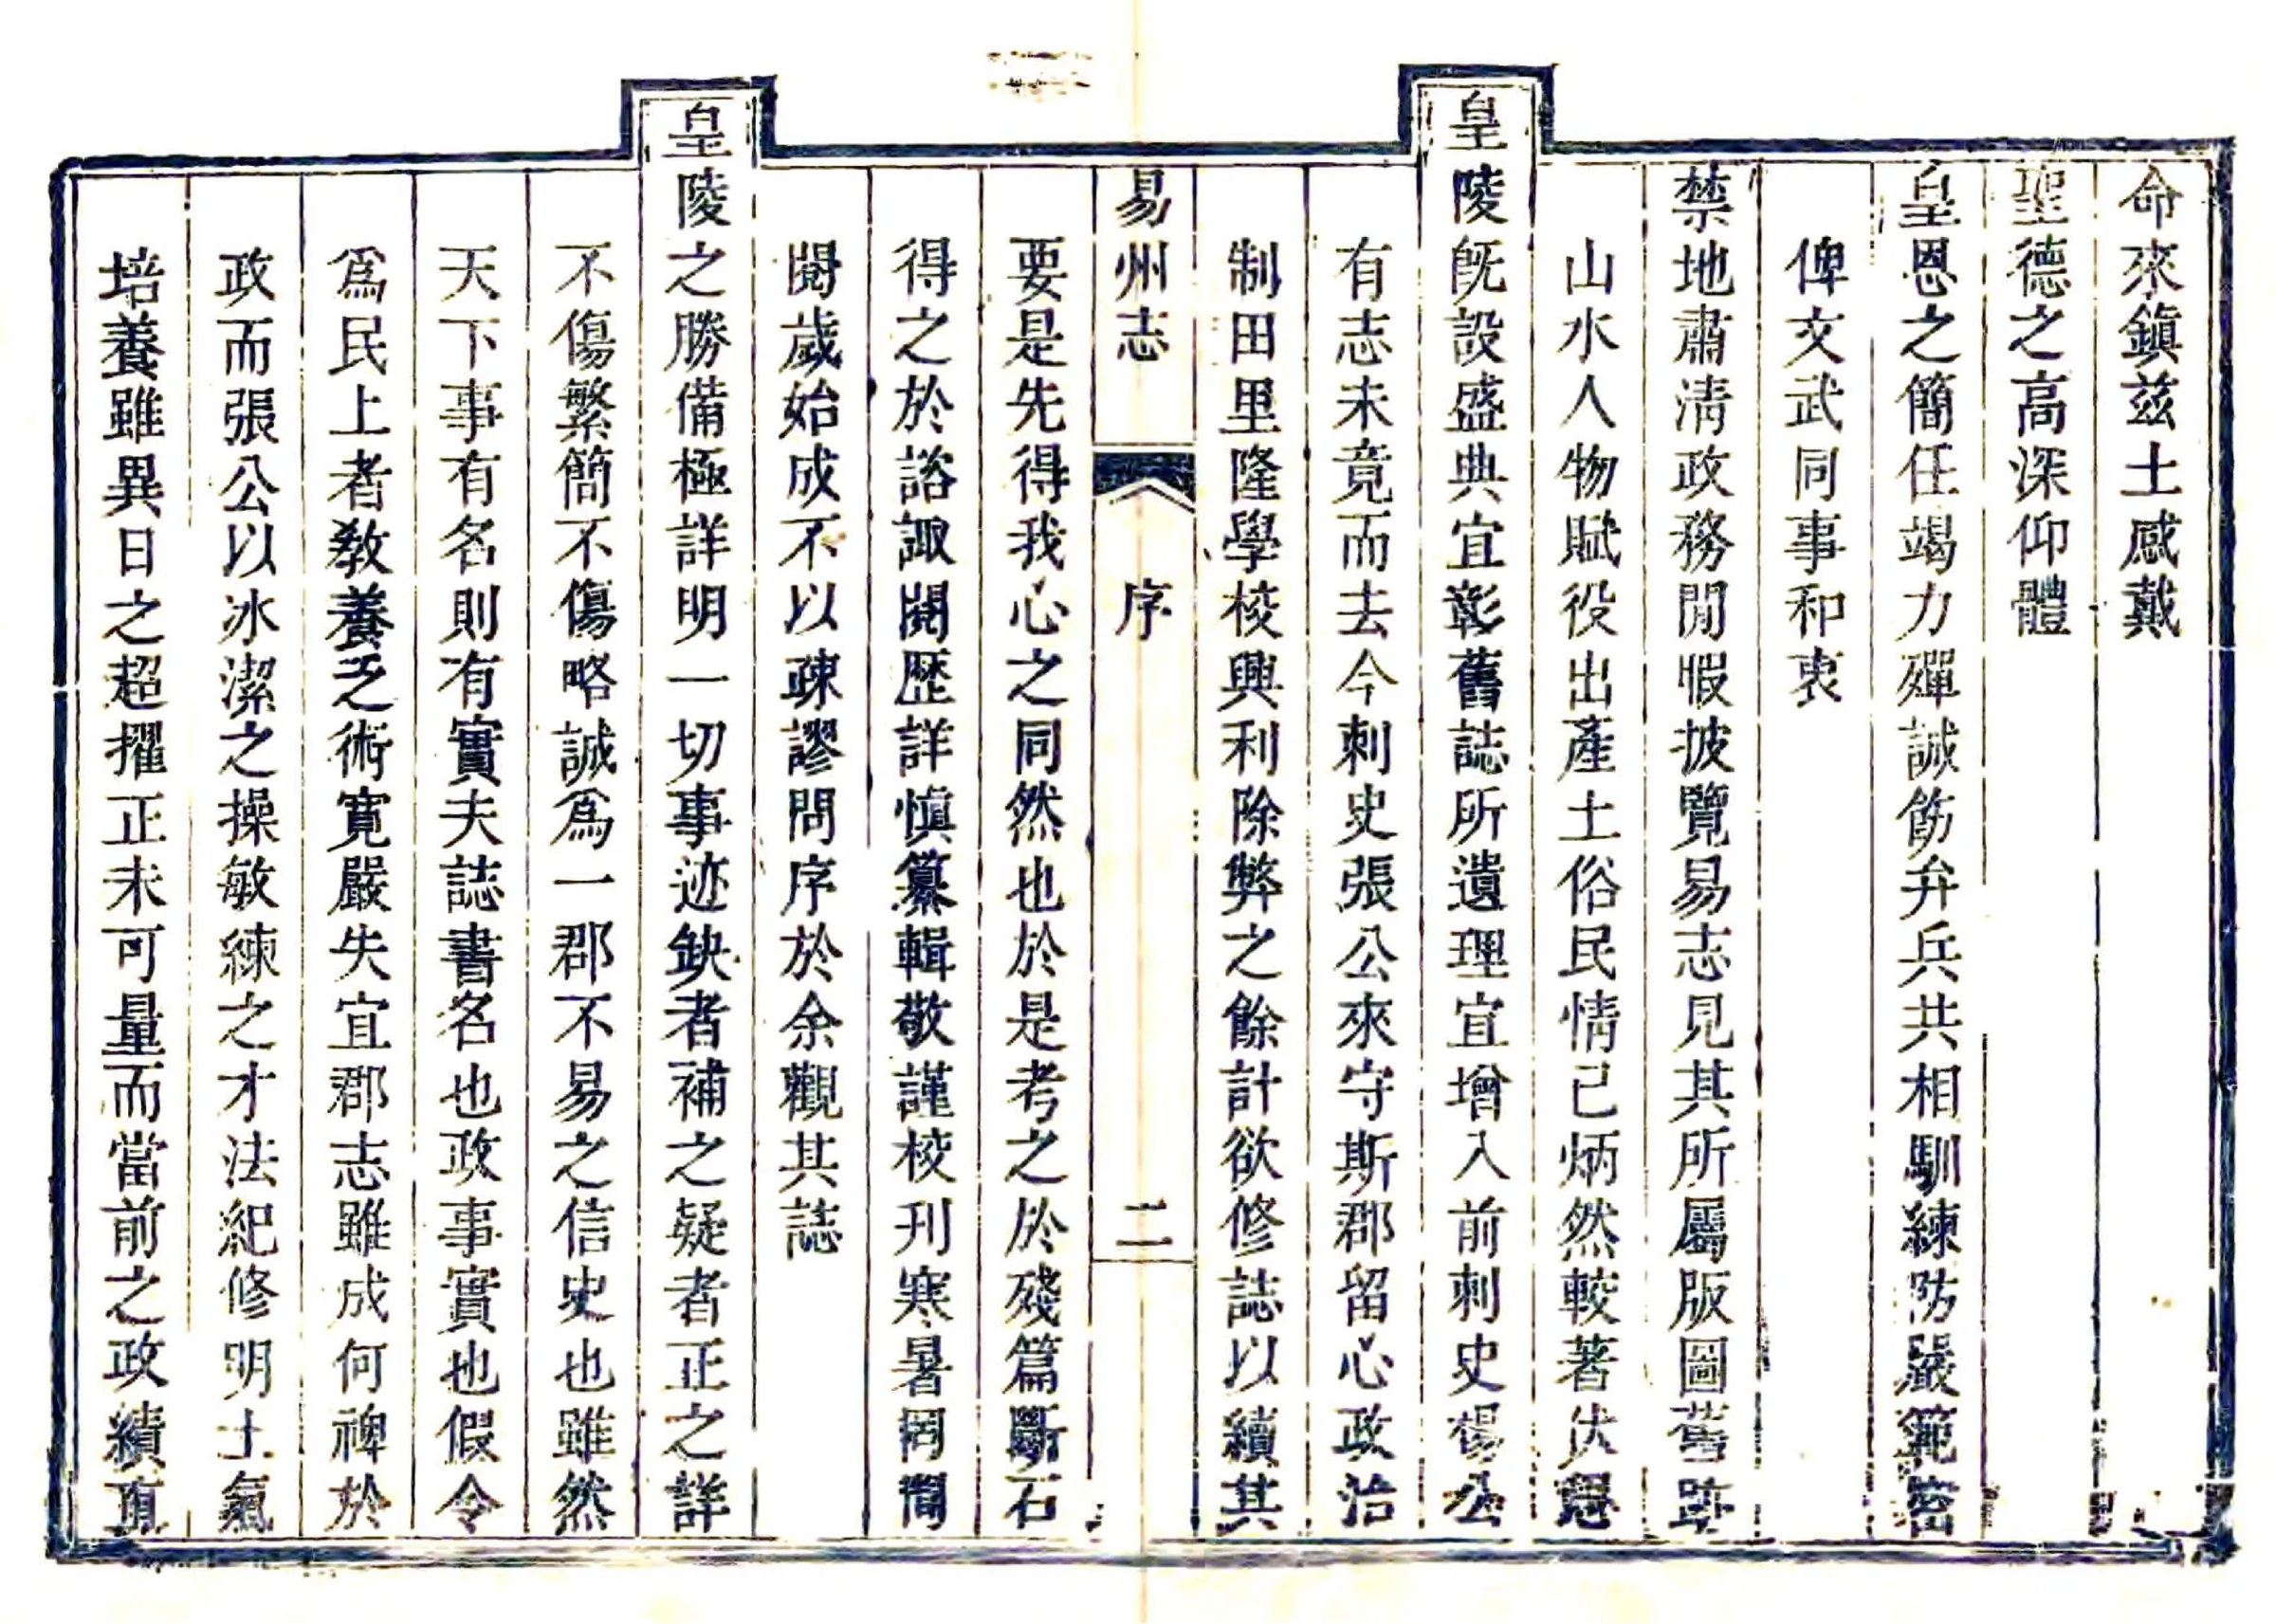 命來鎮兹土感戴
聖德之高深仰體
皇恩之簡任竭力殫誠飭弁兵共相馴練防嚴範密
俾文武同事和衷
禁地肅淸政務閒暇披覽易志見其所屬版圖舊跡
山水人物賦役出產土俗民情已炳然較著伏思
皇陵旣設盛典宜彰舊誌所遺理宜增入前刺史楊公
有志未竟而去今刺史張公來守斯郡留心政治
制田里隆學校興利除弊之餘計欲修誌以續其
易州志 序 二
要是先得我心之同然也於是考之於殘篇斷石
得之於諮諏閱歷詳愼纂輯敬謹校刊寒暑罔間
閱歲始成不以疎謬問序於余觀其誌
皇陵之勝備極詳明一切事迹缺者補之疑者正之詳
不傷繁簡不傷略誠爲一郡不易之信史也雖然
天下事有名則有實夫誌書名也政事實也假令
爲民上者教養乏術寬嚴失宜郡志雖成何裨於
政而張公以冰潔之操敏練之才法紀修明士氣
培養雖異日之超擢正未可量而當前之政績頂